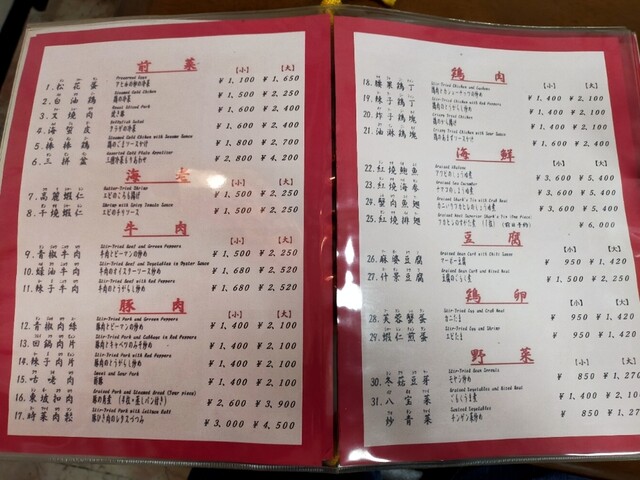 前菜
【小】 【大】
Preserved Eggs
1.松花蛋 アヒルの卵の冷菜 ¥1,100 ¥1,650
Steamed Cold Chicken
2.白油鶏 鶏の冷菜 ¥1,500 ¥2,250
Roast Sliced Pork
3.叉焼肉 焼き豚 ¥1,600 ¥2,400
Jellyfish Salad
4.海蜇皮 クラゲの冷菜 ¥1,600 ¥2,400
Steamed Cold Chicken with Sesame Sauce
5.棒棒鶏 鶏のごまソースかけ ¥1,800 ¥2,700
Assorted Cold Plate Appetizer
6.三拼盆 三種冷菜もりあわせ ¥2,800 ¥4,200
海老
【小】 【大】
Batter-Fried Shrimp
7.高麗蝦仁 エビのころも揚げ ¥1,500 ¥2,250
Shrimp with Spicy Tomato Sauce
8.干焼蝦仁 エビのチリソース ¥1,500 ¥2,250
牛肉
【小】 【大】
Stir-Fried Beef and Green Peppers
9.青椒牛肉 牛肉とピーマンの炒め ¥1,500 ¥2,250
Stir-Fried Beef and Vegetables in Oyster Sauce
10.蠔油牛肉 牛肉のオイスターソース炒め ¥1,680 ¥2,520
Stir-Fried Beef with Red Peppers
11.辣子牛肉 牛肉のとうがらし炒め ¥1,680 ¥2,520
豚肉
【小】 【大】
Stir-Fried Pork and Green Peppers
12.青椒肉絲 豚肉とピーマンの炒め ¥1,400 ¥2,100
Stir-Fried Pork and Cabbage in Red Peppers
13.回鍋肉片 豚肉とキャベツのみそ炒め ¥1,400 ¥2,100
Stir-Fried Pork with Red Peppers
14.辣子肉片 豚肉のとうがらし炒め ¥1,400 ¥2,100
Sweet and Sour Pork
15.咕咾肉 酢豚 ¥1,400 ¥2,100
Braised Pork and Steamed Bread (four piece)
16.東坡扣肉 豚の角煮 (4枚・蒸しパン付き) ¥2,600 ¥3,900
Stir-Fried Pork with Lettuce Roll
17.時菜肉鬆 豚ひき肉のレタスづつみ ¥3,000 ¥4,500
鶏肉
【小】 【大】
Stir-Fried Chicken and Cashews
18.腰果鶏丁 鶏肉とカシューナッツの炒め ¥1,400 ¥2,100
Stir-Fried Chicken with Red Peppers
19.辣子鶏丁 鶏肉のとうがらし炒め ¥1,400 ¥2,100
20.炸子鶏塊 鶏のから揚げ ¥1,400 ¥2,100
21.油淋鶏塊 鶏のあまずソースかけ ¥1,600 ¥2,400
海鮮
【小】 【大】
Braised Abalone
22.紅焼鮑魚 アワビのしょうゆ煮 ¥3,600 ¥5,400
Braised Sea Cucumber
23.紅焼海参 ナマコのしょうゆ煮 ¥3,600 ¥5,400
24.蟹肉魚翅 カニ入りフカひれのしょうゆ煮 ¥3,600 ¥5,400
25.紅焼排翅 フカひれのすがた煮 (1枚) (前日予約) ¥6,000
豆腐
【小】 【大】
Braised Bean Curd with Chili Sauce
26.麻婆豆腐 マーボー豆腐 ¥950 ¥1,420
Braised Bean Curd with Mixed Meat
27.什景豆腐 五目のうま煮 ¥1,500 ¥2,250
鶏卵
【小】 【大】
Stir-Fried Egg and Crab Meat
28.芙蓉蟹蛋 カニたま ¥950 ¥1,420
Stir-Fried Egg and Shrimp
29.蝦仁煎蛋 エビたま ¥950 ¥1,420
野菜
【小】 【大】
Stir-Fried Bean Sprouts
30.冬菇豆芽 モヤシ炒め ¥850 ¥1,270
Braised Vegetables and Mixed Meat
31.八宝菜 ごもくうま煮 ¥1,400 ¥2,100
Sauteed Vegetables
炒青菜 チンゲン菜炒め ¥850 ¥1,27